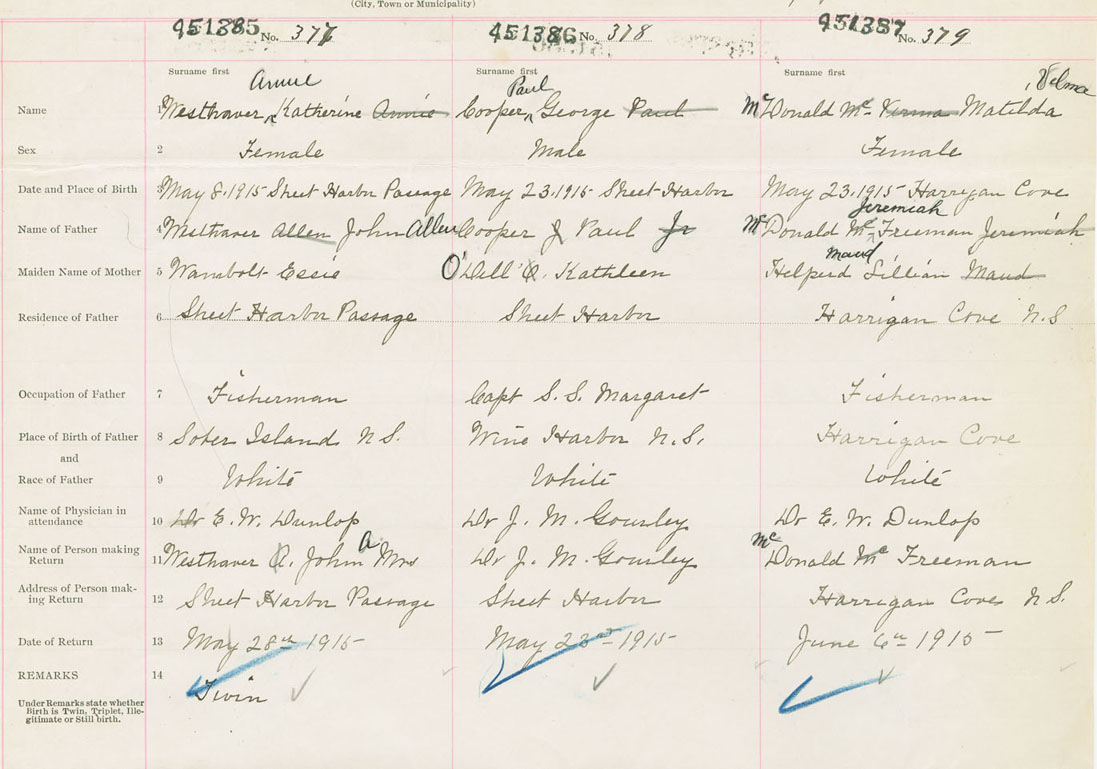 (City, Town or Municipality)
451385 No. 377 451386 No. 378 451387 No. 379
Surname first Surname first Surname first
Annie Paul , Velma
Name 1 Westhaver, Katherine Annie Cooper, George Paul McDonald Mc Verma Matilda
Sex 2 Female Male Female
Date and Place of Birth 3 May 8, 1915 Sheet Harbor Passage May 23, 1915 Sheet Harbor May 23, 1915 Harrigan Cove
Jeremiah
Name of Father 4 Westhaver Allen John Allen Cooper J Paul Jr McDonald Mc Freeman Jeremiah
Maud
Maiden Name of Mother 5 Wambolt Essie O'Dell O. Kathleen Lillian Maud
Residence of Father 6 Sheet Harbor Passage Sheet Harbor Harrigan Cove N.S
Occupation of Father 7 Fisherman Capt S.S. Margaret Fisherman
Place of Birth of Father 8 Sober Island N.S. Wine Harbor N.S. Harrigan Cove
and
Race of Father 9 White White White
Name of Physician in
attendance 10 Dr E. W. Dunlop Dr J. M. Gourley Dr E. W. Dunlop
Name of Person making
Return 11 Westhaver A. John A Mrs Dr J. M. Gourley McDonald Mc Freeman
Address of Person mak-
ing Return 12 Sheet Harbor Passage Sheet Harbor Harrigan Cove N.S.
Date of Return 13 May 28th 1915 May 23rd 1915 June 6th 1915
REMARKS 14
Twin
Under Remarks state whether
Birth is Twin, Triplet, Ille-
gitimate or Still birth.